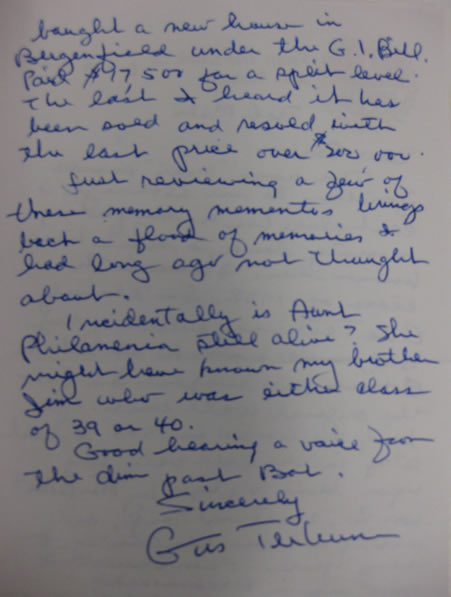 bought a new house in
Bergenfield under the G.I. Bill.
Paid $17,500 for a split level.
The last I heard it has
been sold and resold with
the last price over $200 000.
Just reviewing a few of
these memory mementos brings
back a flood of memories I
had long ago not thought
about.
Incidentally is Aunt
Philamenia still alive? She
might have known my brother
Jim who was either class
of 39 or 40.
Good hearing a voice from
the dim past Bob.
Sincerely
Gus